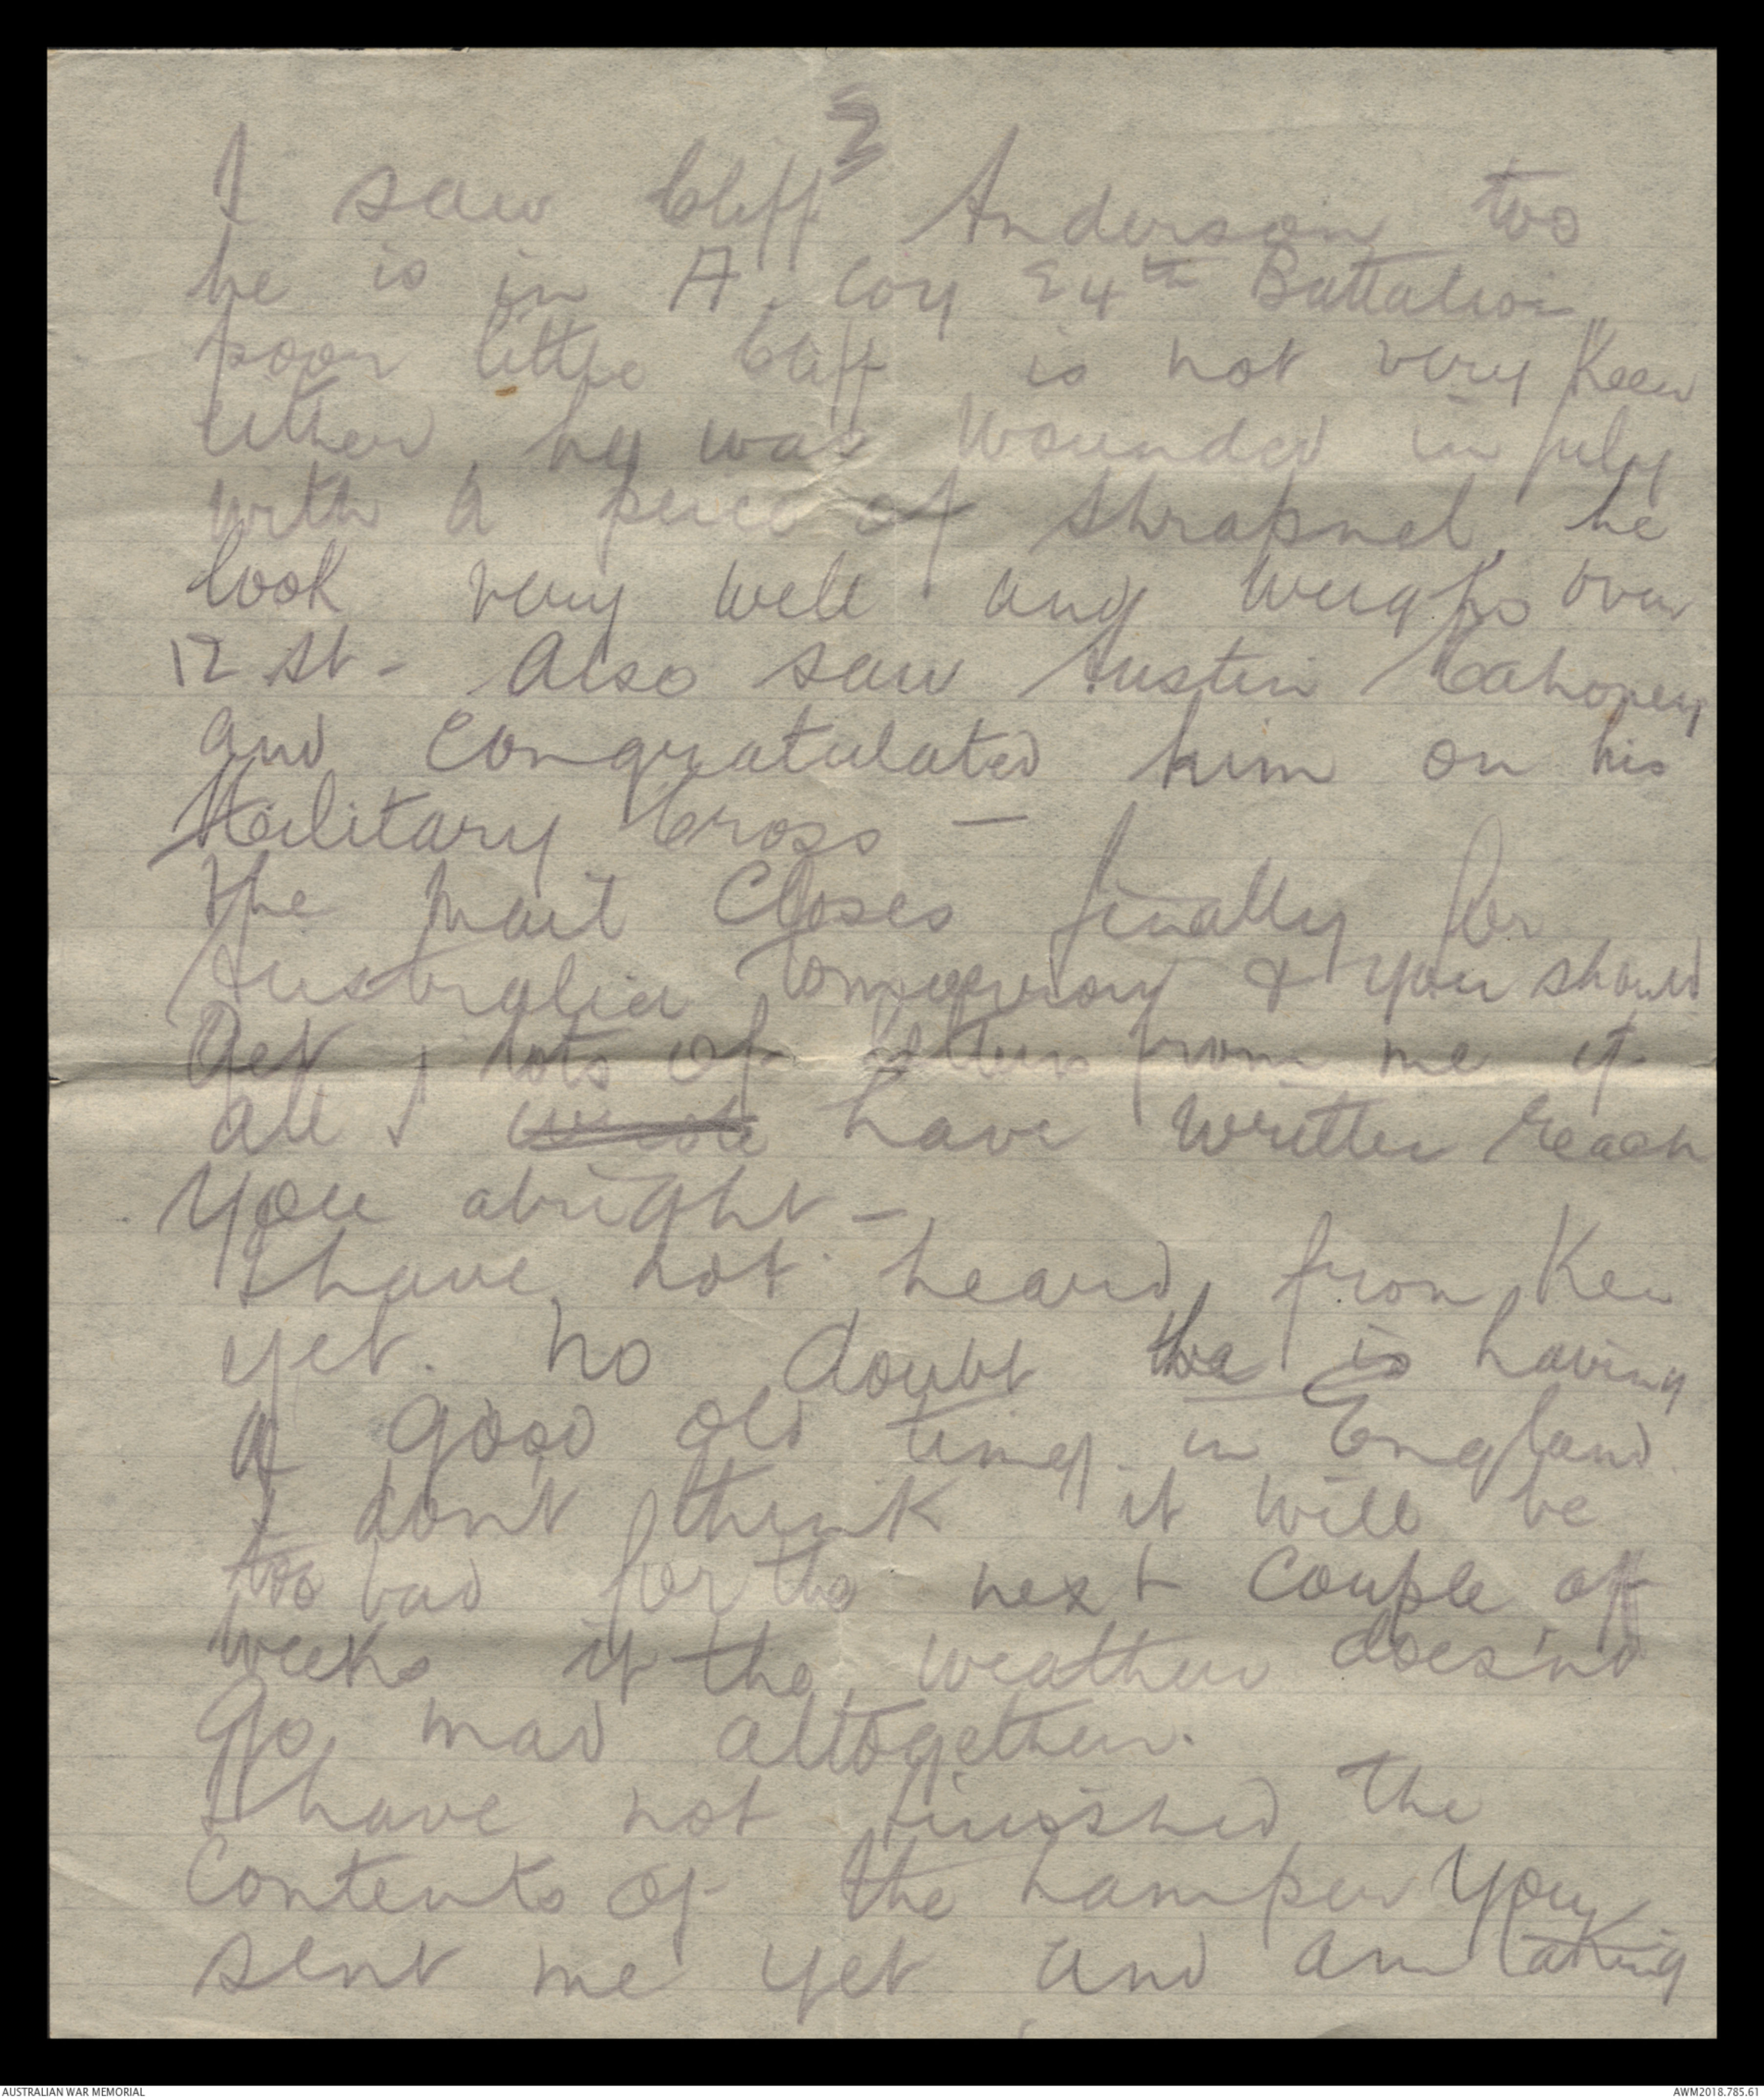 3
I saw Cliff Anderson too
he is in A. Coy 24th Battalion
poor little Cliff is not very keen
either, he was wounded in July
with a peice of shrapnel, he
look very well and weighs over
12 st - Also saw Austin Mahoney
and congratulated him on his
Military Cross -
The mail closes finally for
Australia tomorrow & you should
get lots of letters from me if
all I wrote have written reach
you alright -
I have not heard from Ken
yet. No doubt he is having
a good old time in England
I dont think it will be
too bad for the next couple of
weeks if the weather does'nt
go mad altogether.
I have not finished the
contents of the hamper you
sent me yet and am taking
AUSTRALIAN WAR MEMORIAL
AWM2018.785.61